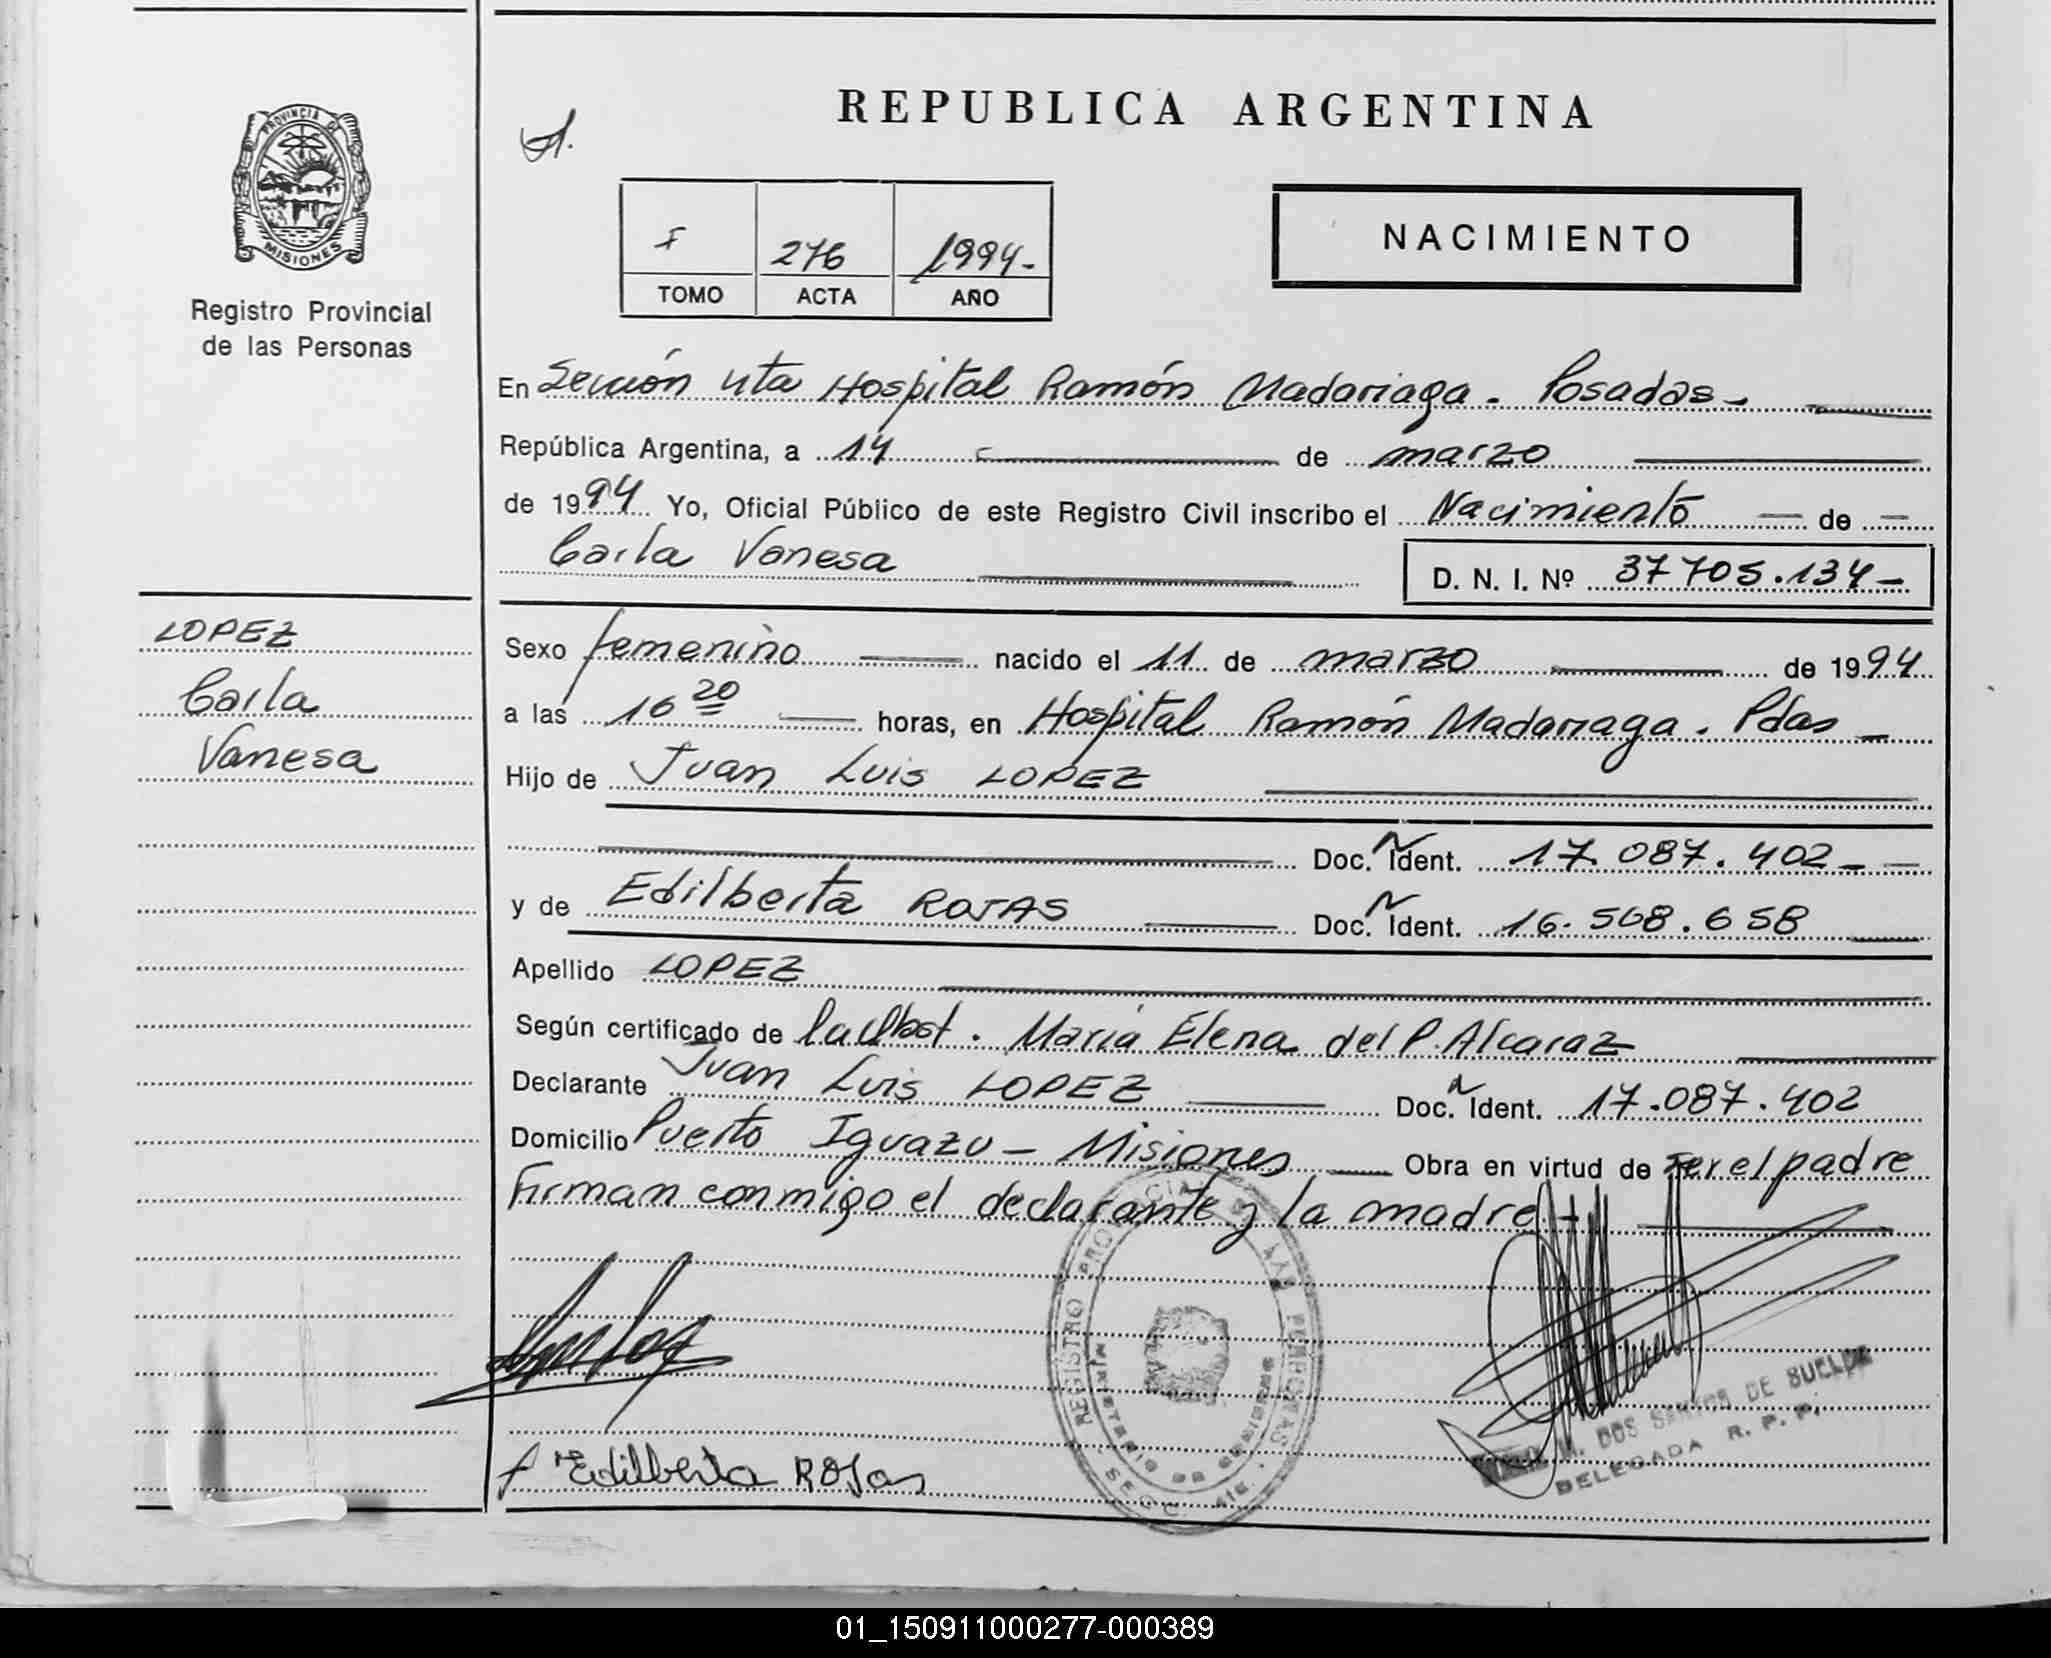 REPUBLICA ARGENTINA
PROVINCIA DE
MISIONES
Registro Provincial
de las Personas
I 276 1994-
TOMO ACTA AÑO
NACIMIENTO
En Sección 4ta Hospital Ramón Madariaga. Posadas-
República Argentina, a 14 de marzo
de 1994 Yo, Oficial Público de este Registro Civil inscribo el Nacimiento de
Carla Vanesa D. N. I. Nº 37705.134-
LOPEZ
Carla
Vanesa
Sexo femenino nacido el 11 de marzo de 1994
a las 16 20 horas, en Hospital Ramón Madariaga. Pdas
Hijo de Juan Luis LOPEZ
Doc. Ident. 17.087.402-
y de Edilberta ROJAS Doc. Ident. 16.508.658
Apellido LOPEZ
Según certificado de la Obst. María Elena del P. Alcaraz
Declarante Juan Luis LOPEZ Doc. Ident. 17.087.402
Domicilio Puerto Iguazu - Misiones Obra en virtud de ser el padre
Firman conmigo el declarante y la madre
REGISTRO PROVINCIAL DE LAS PERSONAS
MINISTERIO DE GOBIERNO
M. DOS SANTOS DE
DELEGADA R. P. P.
Edilberta ROJas
01_150911000277-000389